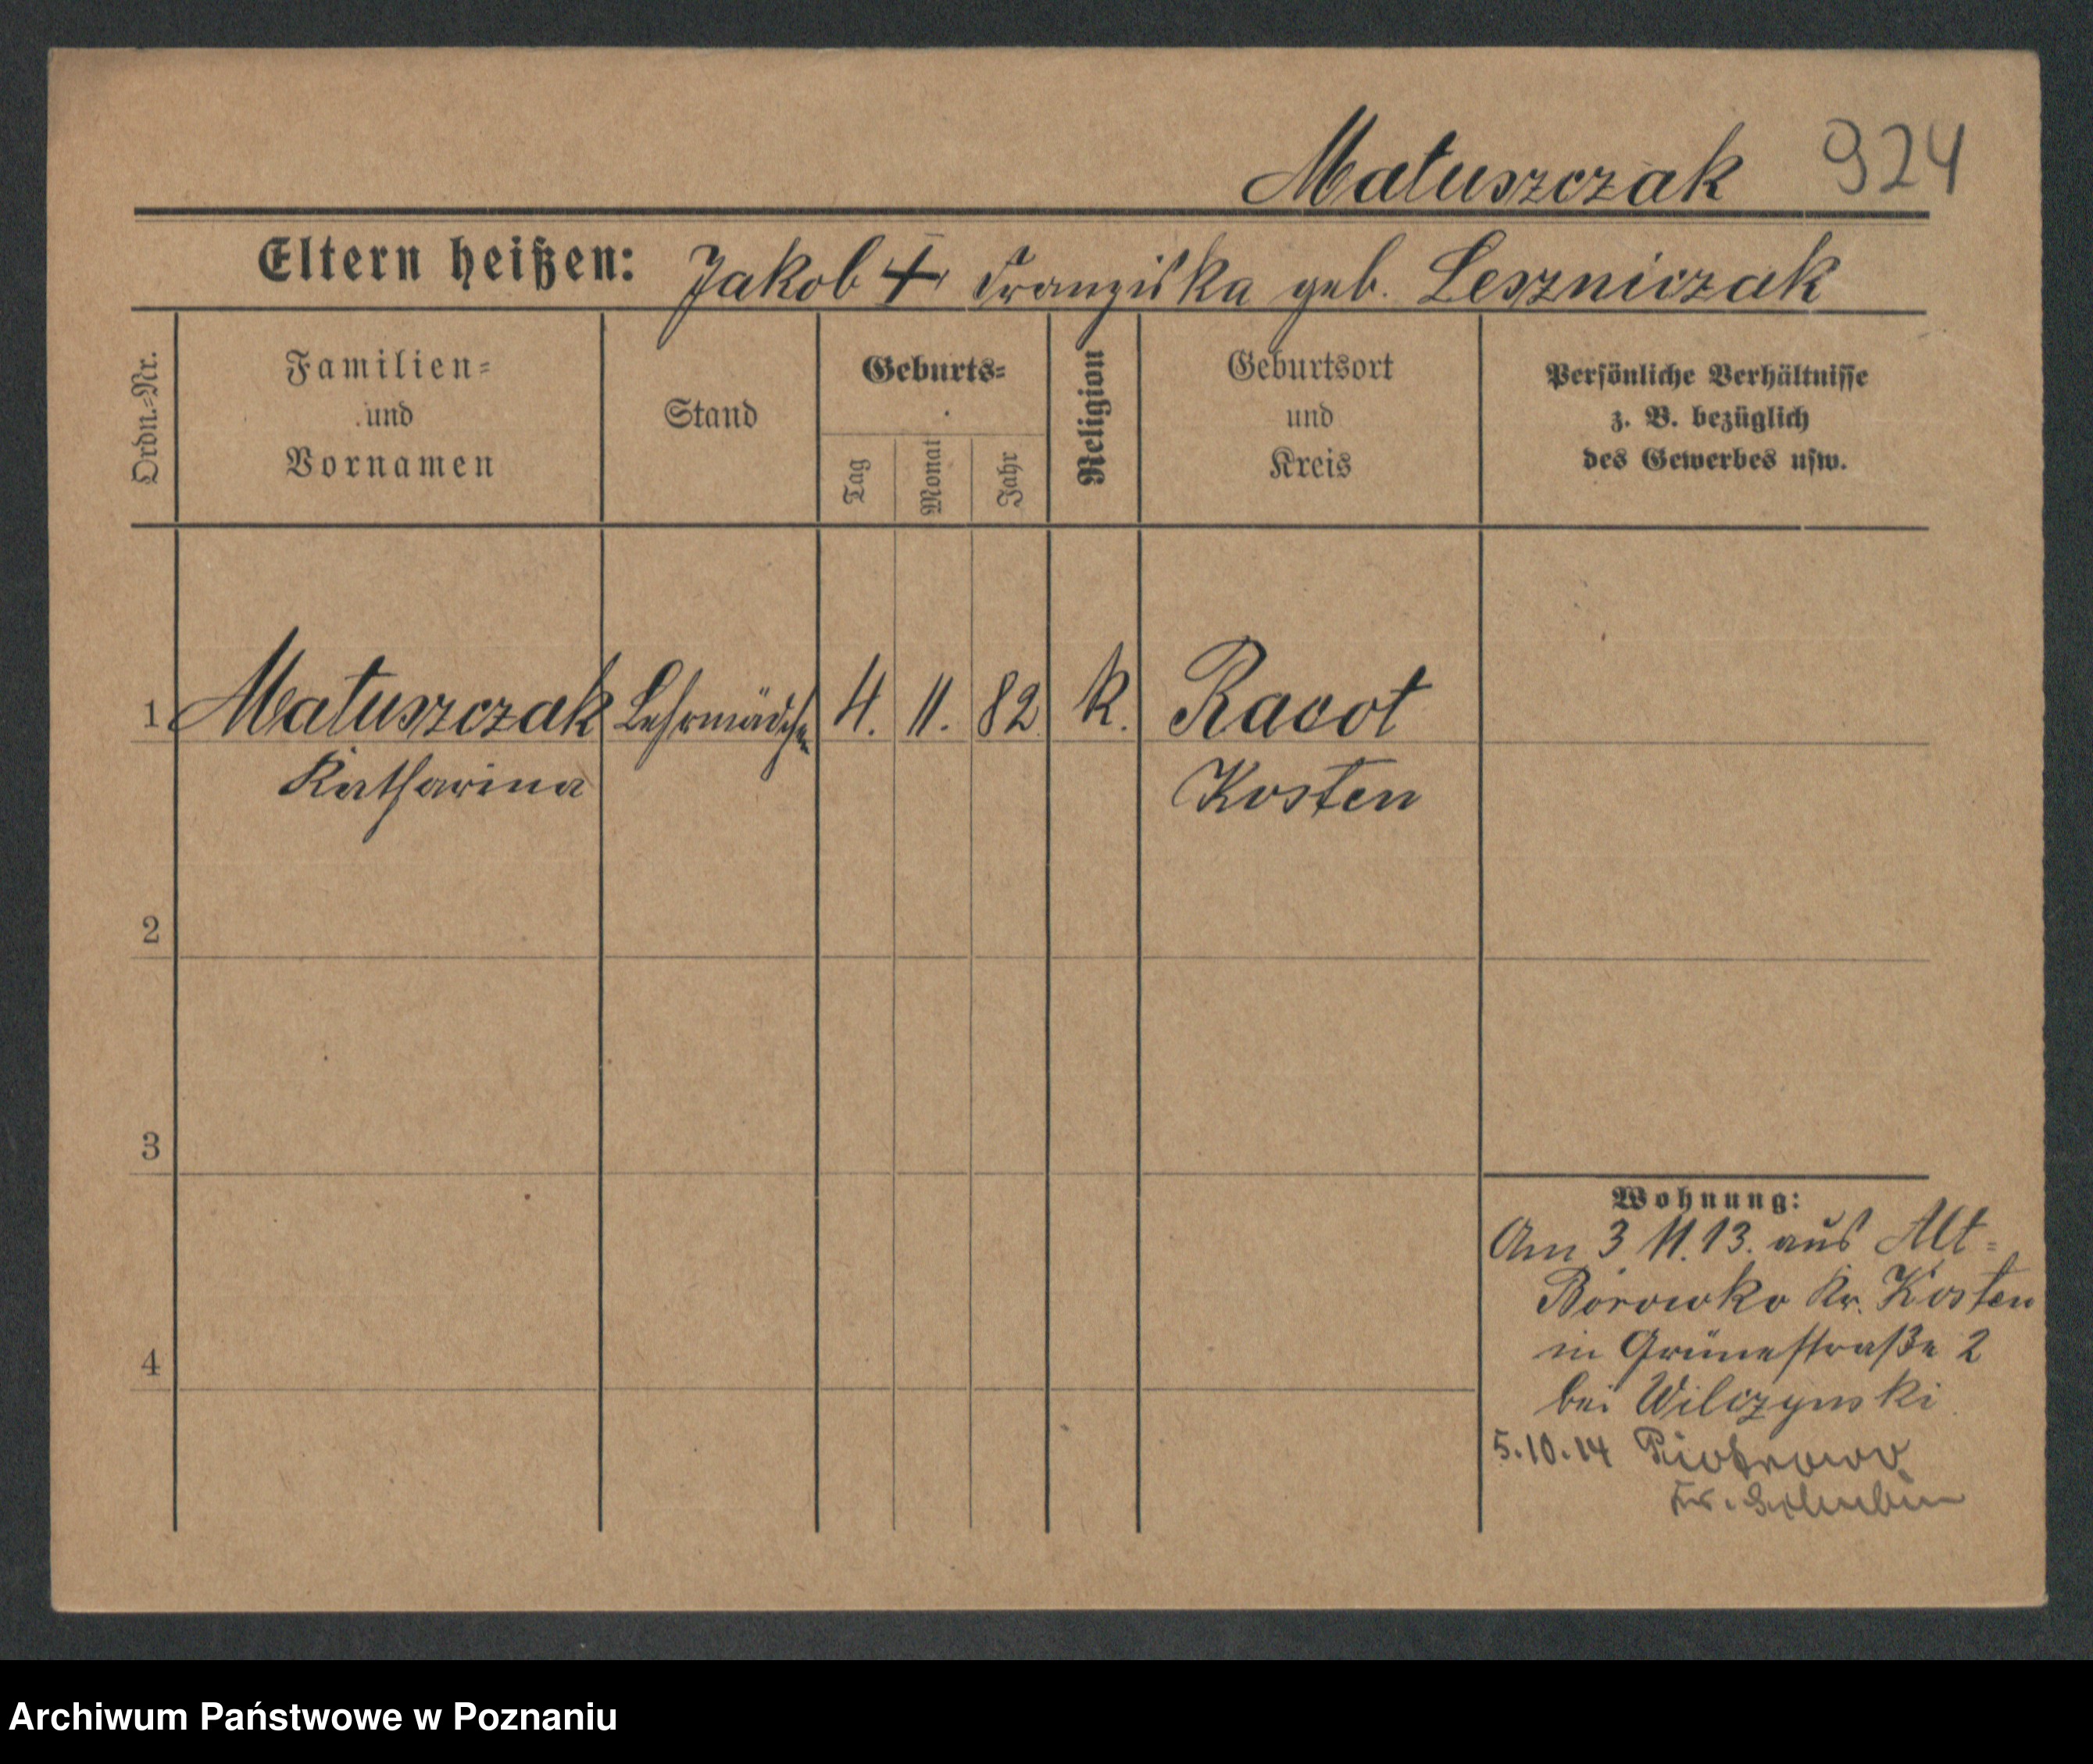 Matuszczak 924
Eltern heißen: Jakob + Franziska geb. Leszniczak
Ordn.-Nr.
Familien-
und
Vornamen
Stand
Geburts-
Tag
Monat
Jahr
Religion
Geburtsort
und
Kreis
Persönliche Verhältnisse
z. B. bezüglich
des Gewerbes usw.
1 Matuszczak Lehrmädchen 4. 11. 82 k. Racot
Katharina Kosten
2
3
4
Wohnung:
Am 3. 11. 13. aus Alt-
Borowko Kr. Kosten
in Grünestraße 2
bei Wilczynski
5.10.14 Piotrowo
Kr. Schubin
Archiwum Państwowe w Poznaniu